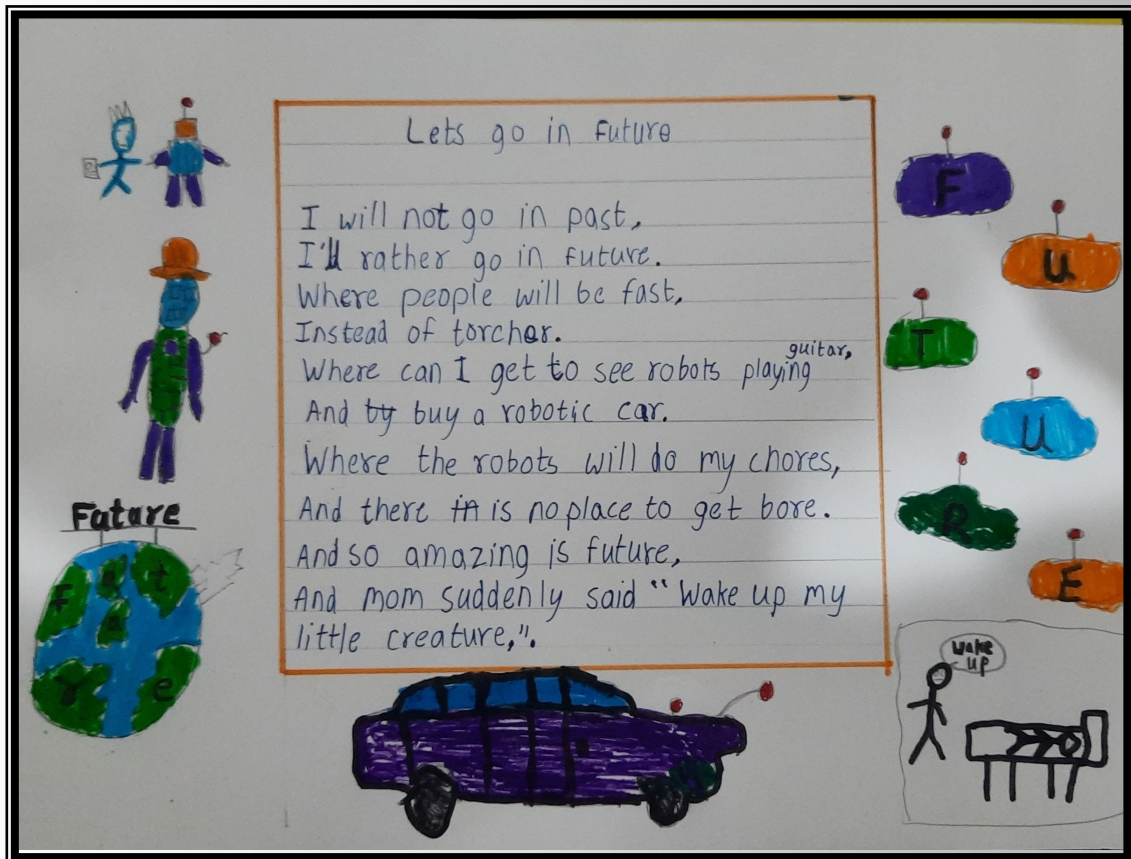 Lets go in future
I will not go in past,
I'll rather go in future.
Where people will be fast,
Instead of torcher.
Where can I get to see robots playing guitar,
And by buy a robotic car.
Where the robots will do my chores,
And there in is no place to get bore.
And so amazing is future,
And mom suddenly said "Wake up my
little creature,".
F
U
T
U
R
E
Future
F u t
u
r e
Wake
up